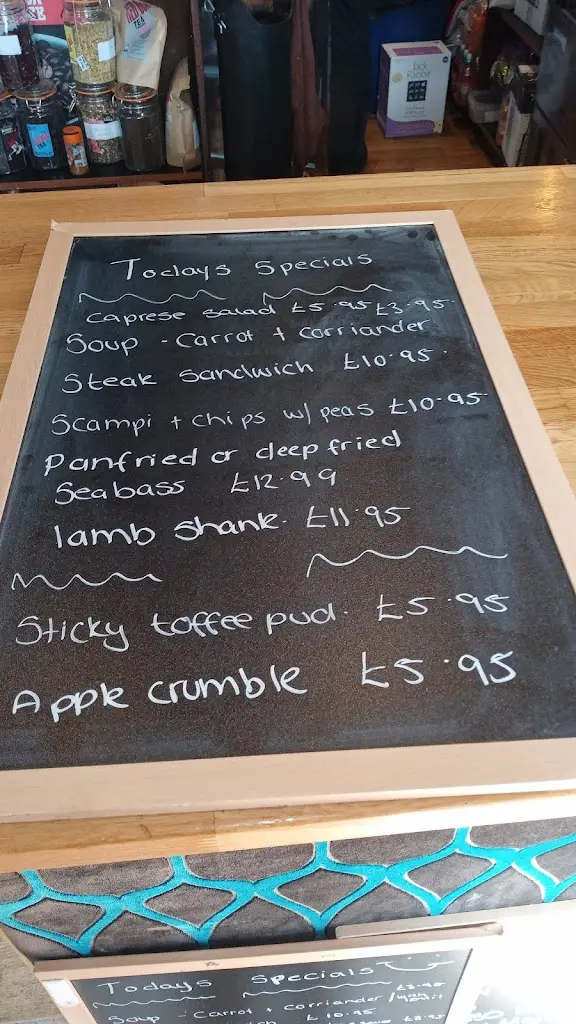 TEA
Todays Specials
caprese salad £5.95 £3.95
Soup - Carrot + Corriander
Steak Sandwich £10.95
Scampi + chips w/ peas £10.95
Panfried or deep fried
Seabass £12.99
lamb shank. £11.95
Sticky toffee pud. £5.95
Apple crumble £5.95
Todays Specials
Soup - Carrot + Corriander
£10.95